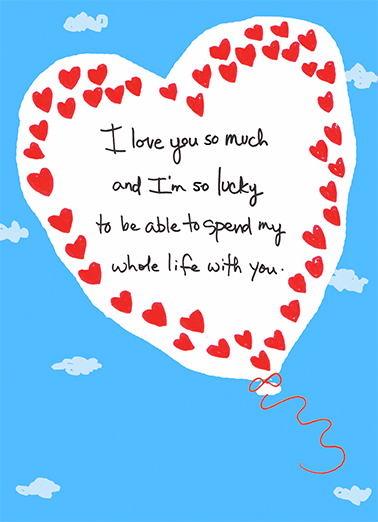 I love you so much
and I'm so lucky
to be able to spend my
whole life with you.